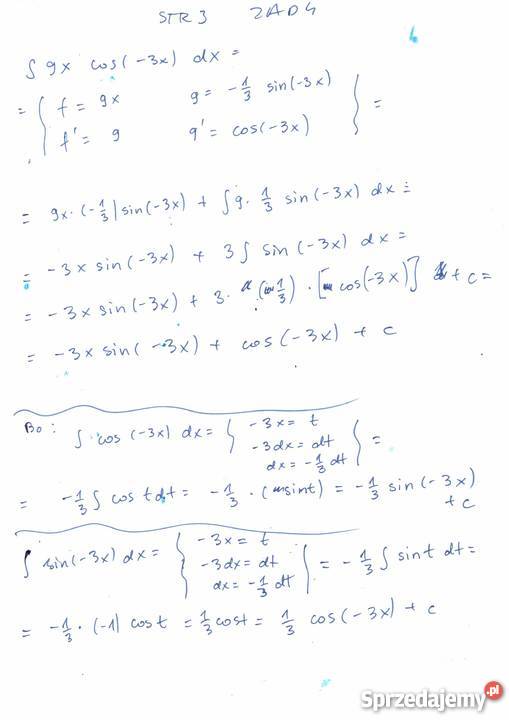 STR 3 ZAD 4
∫ 9x cos(-3x) dx =
= { f = 9x g = -1/3 sin(-3x)
f' = 9 g' = cos(-3x) } =
= 9x·(-1/3) sin(-3x) + ∫9·1/3 sin(-3x) dx =
= -3x sin(-3x) + 3∫ sin(-3x) dx =
= -3x sin(-3x) + 3·(1/3)·[cos(-3x)] + c =
= -3x sin(-3x) + cos(-3x) + c
Bo: ∫ cos(-3x) dx = { -3x = t
-3dx = dt
dx = -1/3 dt } =
= -1/3 ∫ cos t dt = -1/3 · (sin t) = -1/3 sin(-3x)
+c
∫ sin(-3x) dx = { -3x = t
-3dx = dt
dx = -1/3 dt } = -1/3 ∫ sin t dt =
= -1/3 · (-1) cos t = 1/3 cos t = 1/3 cos(-3x) + c
Sprzedajemy.pl